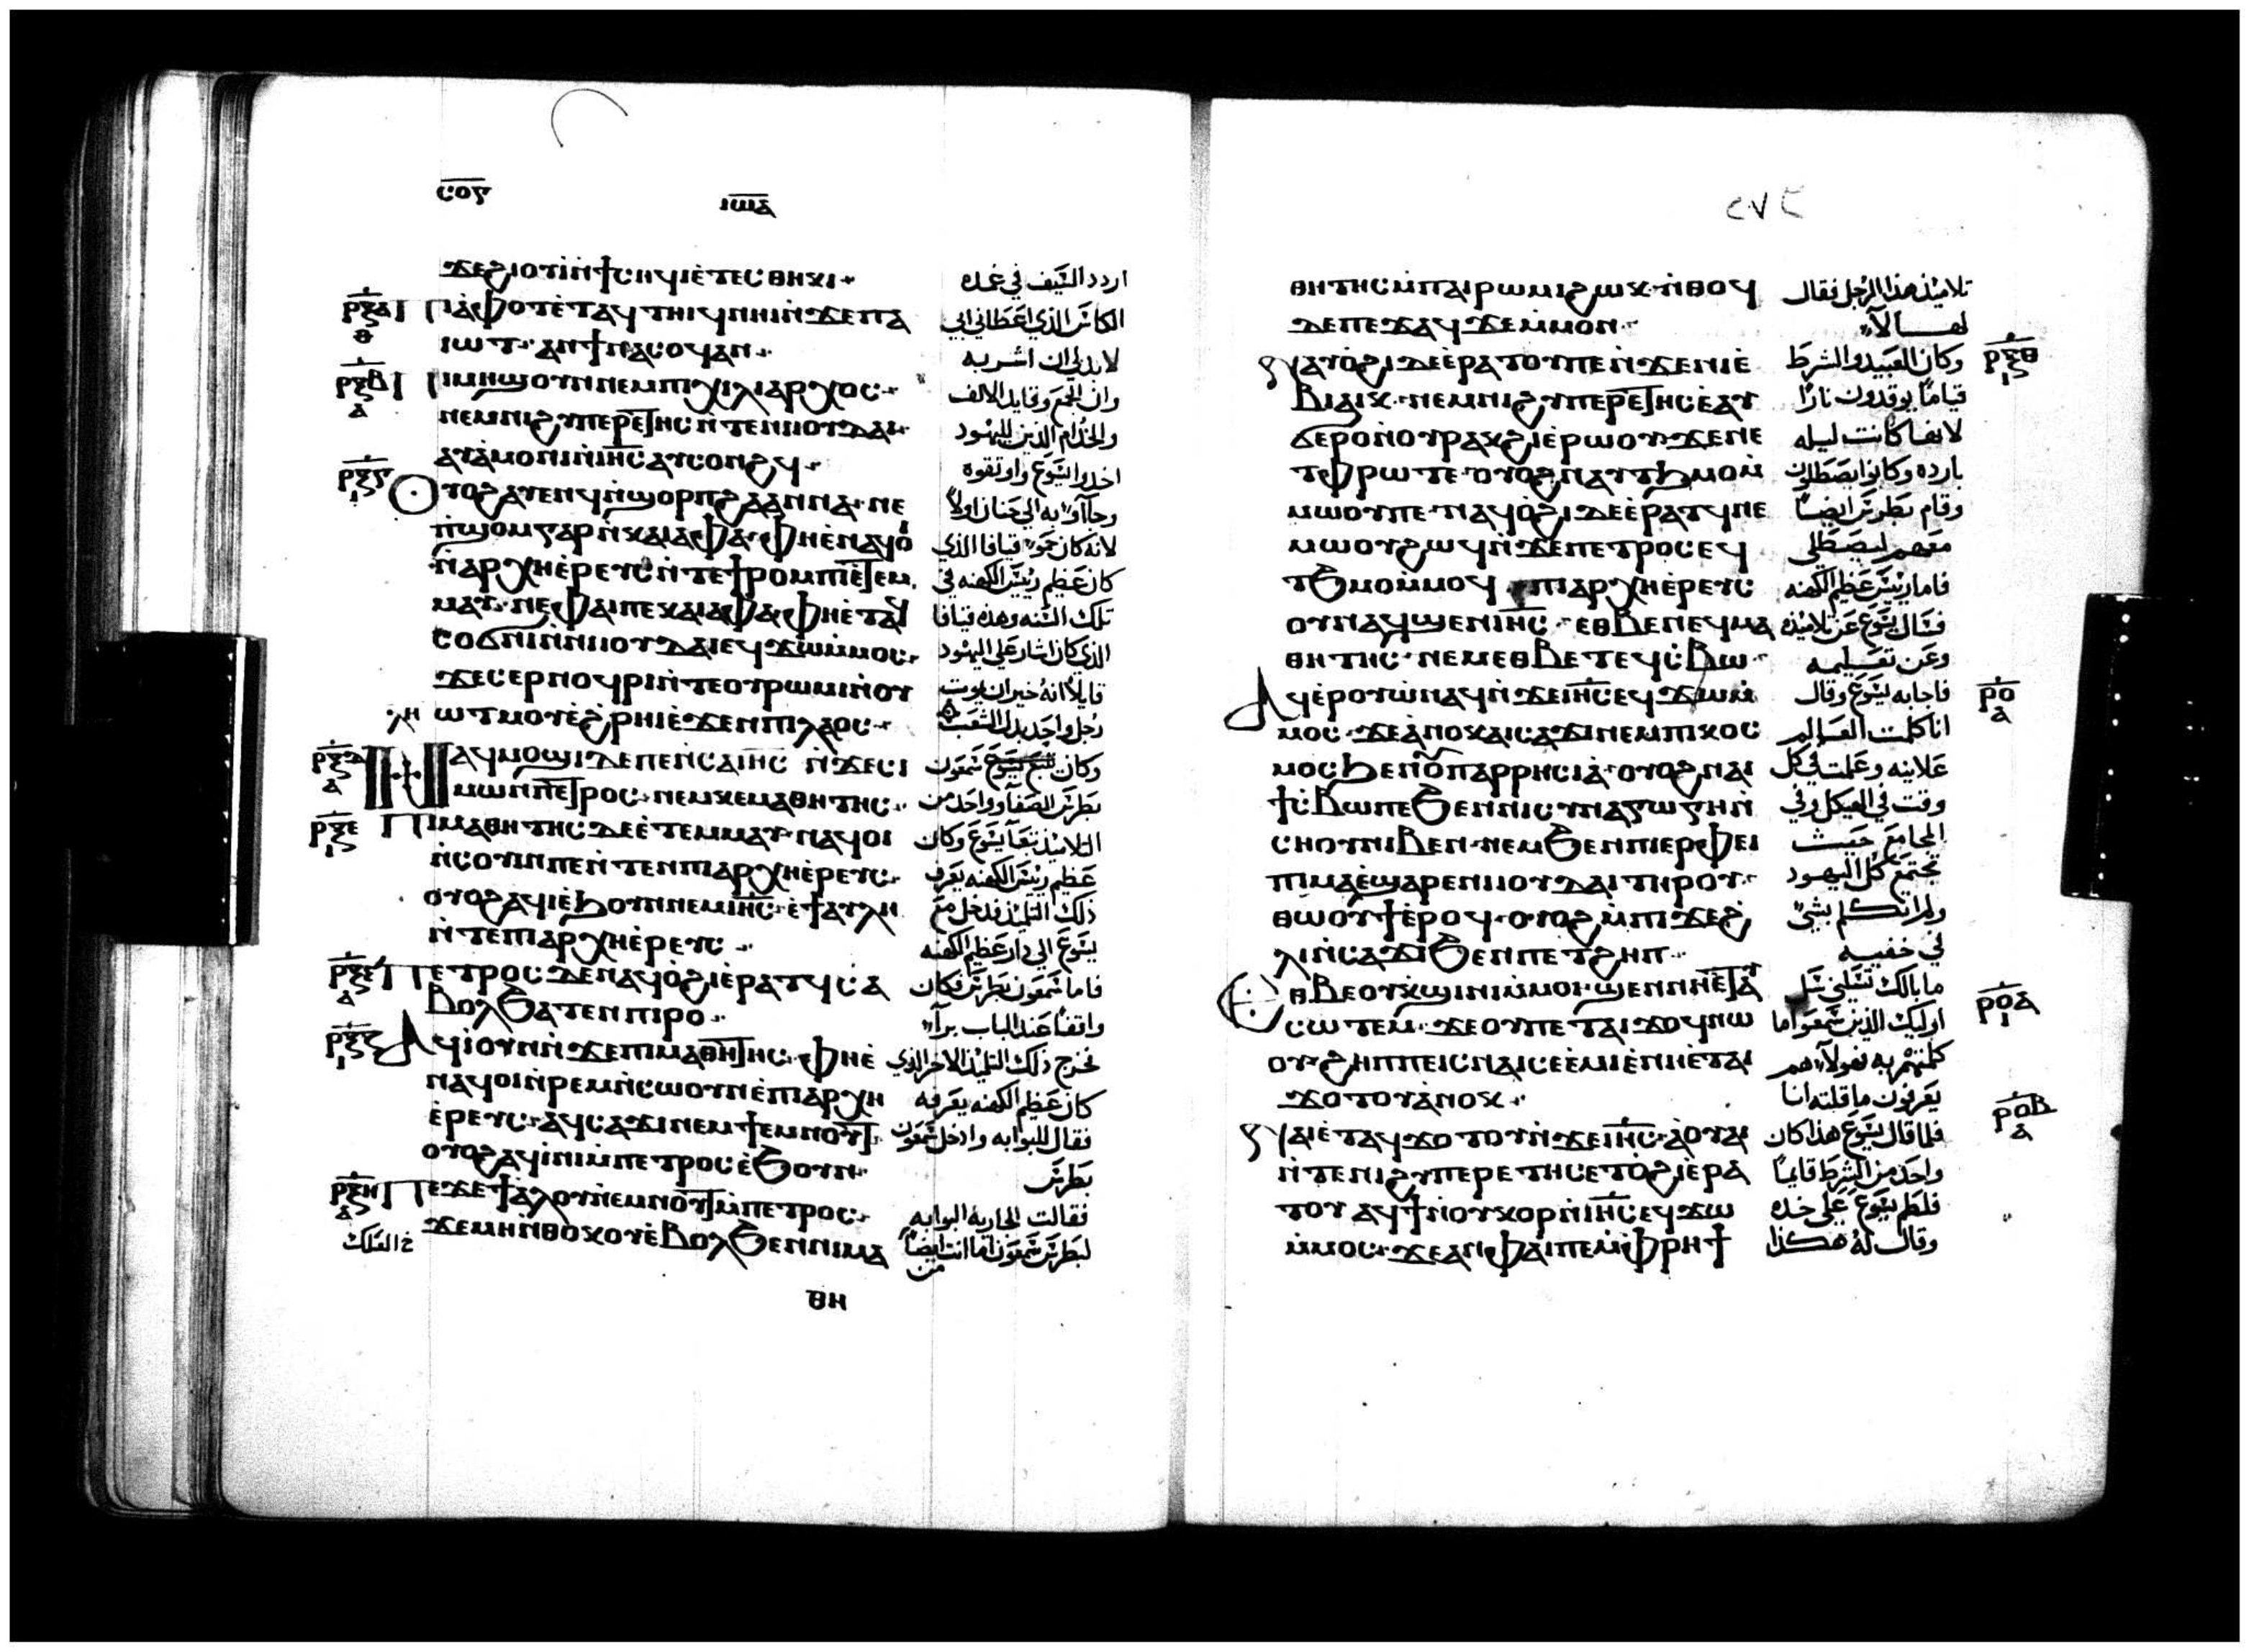 ⲥⲟⲋ
ⲓⲱⲁ
ϫⲉϩⲓⲟⲩⲓ̀ⲛ̀ϯⲥⲏϥⲓⲉ̀ⲧⲉⲥⲑⲏⲕⲓ
ⲣⲝⲁ
ⲑ
ⲡⲓⲁ̀ⲫⲟⲧⲉ̀ⲧⲁϥⲧⲏⲓϥⲛⲏⲓⲛ̀ϫⲉⲡⲁ
ⲓⲱⲧ ⲁⲛϯⲛⲁⲥⲟϥⲁⲛ
ⲣⲝⲃ
ⲁ
ⲡⲓⲙⲏϣⲟⲩⲛⲛⲉⲙⲡⲓⲭⲓⲗⲓⲁⲣⲭⲟⲥ
ⲛⲉⲙⲛⲓϩⲩⲡⲉⲣⲉⲧⲏⲥⲛ̀ⲧⲉⲛⲓⲟⲩⲇⲁⲓ
ⲁⲩⲁ̀ⲙⲟⲛⲓⲛ̀ⲓⲏⲥⲁⲩⲥⲟⲛϩϥ
ⲣⲝⲅ
ⲓ
ⲟⲩⲟϩⲁⲩⲉⲛϥⲛ̀ϣⲟⲣⲡϩⲁⲁⲛⲛⲁ ⲛⲉ
ⲡ̀ϣⲟⲙⲅⲁⲣⲛ̀ⲕⲁⲓⲁⲫⲁ ⲫⲏⲉ̀ⲛⲁϥⲟ̀
ⲛ̀ⲁⲣⲭⲏⲉ̀ⲣⲉⲩⲥⲛ̀ⲧⲉϯⲣⲟⲙⲡⲓⲉ̀ⲧⲉⲙ
ⲙⲁⲩ ⲛⲉⲫⲁⲓⲡⲉⲕⲁⲓⲁⲫⲁ ⲫⲏⲉ̀ⲧⲁϥ
ⲥⲟϭⲛⲓⲛ̀ⲛⲓⲓⲟⲩⲇⲁⲓⲉϥϫⲱⲙ̀ⲙⲟⲥ
ϫⲉⲥⲉⲣⲛⲟϥⲣⲓⲛ̀ⲧⲉⲟⲩⲣⲱⲙⲓⲛ̀ⲟⲩ
ⲱⲧⲙⲟⲩⲉ̀ϩ̀ⲣⲏⲓⲉ̀ϫⲉⲛⲡⲓⲗⲁⲟⲥ
ⲗⲏ
ⲣⲝⲇ
ⲁ
ⲛⲁϥⲙⲟϣⲓⲇⲉⲡⲉⲛ̀ⲥⲁⲓⲏⲥ ⲛ̀ϫⲉⲥⲓ
ⲙⲱⲛⲡⲉⲧⲣⲟⲥ ⲛⲉⲙⲕⲉⲙⲁⲑⲏⲧⲏⲥ
ⲣⲝⲉ
ⲓ
ⲡⲓⲙⲁⲑⲏⲧⲏⲥⲇⲉⲉ̀ⲧⲉⲙⲙⲁⲩ ⲛⲁϥⲟⲓ
ⲛ̀ⲥⲟⲩⲓⲛⲡⲉⲛ̀ⲧⲉⲛⲡⲓⲁⲣⲭⲏⲉ̀ⲣⲉⲩⲥ
ⲟⲩⲟϩⲁϥⲓⲉ̀ϧⲟⲩⲛⲛⲉⲙⲓⲏⲥ ⲉ̀ϯⲁⲩⲗⲏ
ⲛ̀ⲧⲉⲡⲓⲁⲣⲭⲏⲉ̀ⲣⲉⲩⲥ
ⲁ
ⲡⲉⲧⲣⲟⲥⲇⲉⲛⲁϥⲟ̀ϩⲓⲉ̀ⲣⲁⲧϥⲥⲁ
ⲃⲟⲗϧⲁⲧⲉⲛⲡⲓⲣⲟ
ⲣⲝⲍ
ⲓ
ⲁϥⲓⲟⲩⲛⲛ̀ϫⲉⲡⲓⲙⲁⲑⲏⲧⲏⲥ ⲫⲏⲉ̀
ⲛⲁϥⲟⲓⲛ̀ⲣⲉⲙⲛ̀ⲥⲱⲟⲩⲛⲉ̀ⲡⲓⲁⲣⲭⲏ
ⲉ̀ⲣⲉⲩⲥ ⲁϥⲥⲁϫⲓⲛⲉⲙϯⲉⲙⲛⲟⲩϯ
ⲟⲩⲟϩⲁϥⲓ̀ⲛⲓⲙ̀ⲡⲉⲧⲣⲟⲥⲉ̀ϧⲟⲩⲛ
ⲣⲝⲏ
ⲁ
ⲡⲉϫⲉϯⲁ̀ⲗⲟⲩⲛ̀ⲉⲙⲛⲟⲩϯⲙ̀ⲡⲉⲧⲣⲟⲥ
ϫⲉⲙⲏⲛ̀ⲑⲟⲕⲟⲩⲉ̀ⲃⲟⲗϧⲉⲛⲛⲓⲙⲁ
ⲑⲏ
اردد السيف في غمده
الكاس الذي اعطاني ابي
لابد لي ان اشربه
وان الجمع وقايد الالف
والخدام الذين لليهود
اخدوا يسوع واوتقوه
وجآوا به الي حنان اولا
لانه كان حمو قيافا الذي
كان عظيم رييس الكهنه في
تلك السنه وهذه قيافا
الذي كان اشار علي اليهود
قايلا انه خير ان يموت
رجل واحد بدل الشعب
وكان يتبع يسوع شمعون
بطرس الصفا وواحد من
التلاميذ تبعا يسوع وكان
عظيم رييس الكهنه يعرف
ذلك التلميذ فدخل مع
يسوع الي دار عظيم الكهنه
فاما شمعون بطرس فكان
واقفا عند الباب برآ
فخرج ذلك التلميذ الاخر الذي
كان عظيم الكهنه يعرفه
فقال للبوابه وادخل شمعون
بطرس
فقالت الجاريه البوابه
لبطرس شمعون اما انت ايضا
من
٢٧٦
ⲑⲏⲧⲏⲥⲙ̀ⲡⲁⲓⲣⲱⲙⲓϩⲱⲕ ⲛ̀ⲑⲟϥ
ⲇⲉⲡⲉϫⲁϥϫⲉⲙ̀ⲙⲟⲛ
ⲣⲝⲑ
ⲓ
ⲛⲁⲩⲟ̀ϩⲓⲇⲉⲉ̀ⲣⲁⲧⲟⲩⲡⲉⲛ̀ϫⲉⲛⲓⲉ̀
ⲃⲓⲁⲓⲕ ⲛⲉⲙⲛⲓϩⲩⲡⲉⲣⲉⲧⲏⲥⲉ̀ⲁⲩ
ϭⲉⲣⲟⲛ̀ⲟⲩⲣⲁⲕϩⲓⲉ̀ⲣⲱⲟⲩ ϫⲉⲛⲉ
ⲧⲫⲣⲱⲧⲉ ⲟⲩⲟϩⲛⲁⲩⲧϧⲙⲟⲙ̀
ⲙⲱⲟⲩⲡⲉ ⲛⲁϥⲟ̀ϩⲓⲇⲉⲉ̀ⲣⲁⲧϥⲛⲉ
ⲙⲱⲟⲩϩⲱϥⲛ̀ϫⲉⲡⲉⲧⲣⲟⲥⲉϥ
ⲧϧⲙⲟⲙ̀ⲙⲟϥ ⲡⲓⲁⲣⲭⲏⲉ̀ⲣⲉⲩⲥ
ⲟⲩⲛⲁϥϣⲉⲛⲓⲏⲥ ⲉⲑⲃⲉⲛⲉϥⲙⲁ
ⲑⲏⲧⲏⲥ ⲛⲉⲙⲉⲑⲃⲉⲧⲉϥⲥ̀ⲃⲱ
ⲣⲟ
ⲁ
ⲁϥⲉ̀ⲣⲟⲩⲱ̀ⲛⲁϥⲛ̀ϫⲉⲓⲏⲥⲉϥϫⲱⲙ̀
ⲙⲟⲥ ϫⲉⲁ̀ⲛⲟⲕⲁⲓⲥⲁϫⲓⲛⲉⲙⲡⲓⲕⲟⲥ
ⲙⲟⲥϧⲉⲛⲟⲩⲡⲁⲣⲣⲏⲥⲓⲁ̀ ⲟⲩⲟϩⲛⲁⲓ
ϯⲥ̀ⲃⲱⲡⲉϧⲉⲛⲛⲓⲥⲩⲛⲁⲅⲱⲅⲏⲛ̀
ⲥⲏⲟⲩⲛⲓⲃⲉⲛ ⲛⲉⲙϧⲉⲛⲡⲓⲉⲣⲫⲉⲓ
ⲡⲓⲙⲁⲉ̀ϣⲁⲣⲉⲛⲓⲓⲟⲩⲇⲁⲓⲧⲏⲣⲟⲩ
ⲑⲱⲟⲩϯⲉ̀ⲣⲟϥ ⲟⲩⲟϩⲙ̀ⲡⲓϫⲉϩ̀
ⲗⲓⲛ̀ⲥⲁϫⲓϧⲉⲛⲡⲉⲧϩⲏⲡ
ⲣⲟⲁ
ⲓ
ⲉⲑⲃⲉⲟⲩⲕ̀ϣⲓⲛⲓⲙ̀ⲙⲟⲓ ϣⲉⲛⲛⲏⲉ̀ⲧⲁⲩ
ⲥⲱⲧⲉⲙ ϫⲉⲟⲩⲡⲉⲧⲁⲓϫⲟϥⲛⲱ
ⲟⲩ ϩⲏⲡⲡⲉⲓⲥⲛⲁⲓⲥⲉⲉ̀ⲙⲓⲉ̀ⲛⲏⲉ̀ⲧⲁⲓ
ϫⲟⲧⲟⲩⲁ̀ⲛⲟⲕ
ⲣⲟⲃ
ⲁ
ⲛⲁⲓⲉ̀ⲧⲁϥϫⲟⲧⲟⲩⲛ̀ϫⲉⲓⲏⲥ ⲁ̀ⲟⲩⲁⲓ
ⲛ̀ⲧⲉⲛⲓϩⲩⲡⲉⲣⲉⲧⲏⲥⲉⲧⲟ̀ϩⲓⲉ̀ⲣⲁ
ⲧⲟⲩ ⲁϥϯⲛ̀ⲟⲩⲕⲟⲣⲛ̀ⲓⲏⲥⲉϥϫⲱ
ⲙ̀ⲙⲟⲥ ϫⲉⲁⲛⲫⲁⲓⲡⲉⲙ̀ⲫⲣⲏϯ
تلاميذ هذا الرجل فقال
لها لا
وكان العبيد والشرط
قياما يوقدون نارا
لانها كانت ليله
بارده وكانوا يصطلون
وقام بطرس ايضا
معهم ليصطلي
فاما رييس عظيم الكهنه
فسال يسوع عن تلاميذه
وعن تعليمه
فاجابه يسوع وقال
انا كلمت العالم
علانيه وعلمت في كل
وقت في الهيكل وفي
المجامع حيث
تجتمع كل اليهود
ولم اتكلم بشي
في خفيه
ما بالك تسلني سل
اوليك الذين سمعوا ما
كلمتهم به فهولآ هم
يعرفون ما قلته انا
فلما قال يسوع هذا كان
واحد من الشرط قايما
فلطم يسوع علي خده
وقال له هكذا